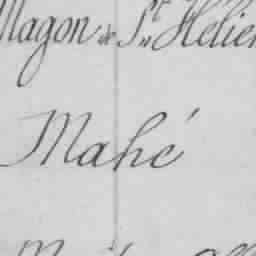 Magon de St Hélier
Mahé